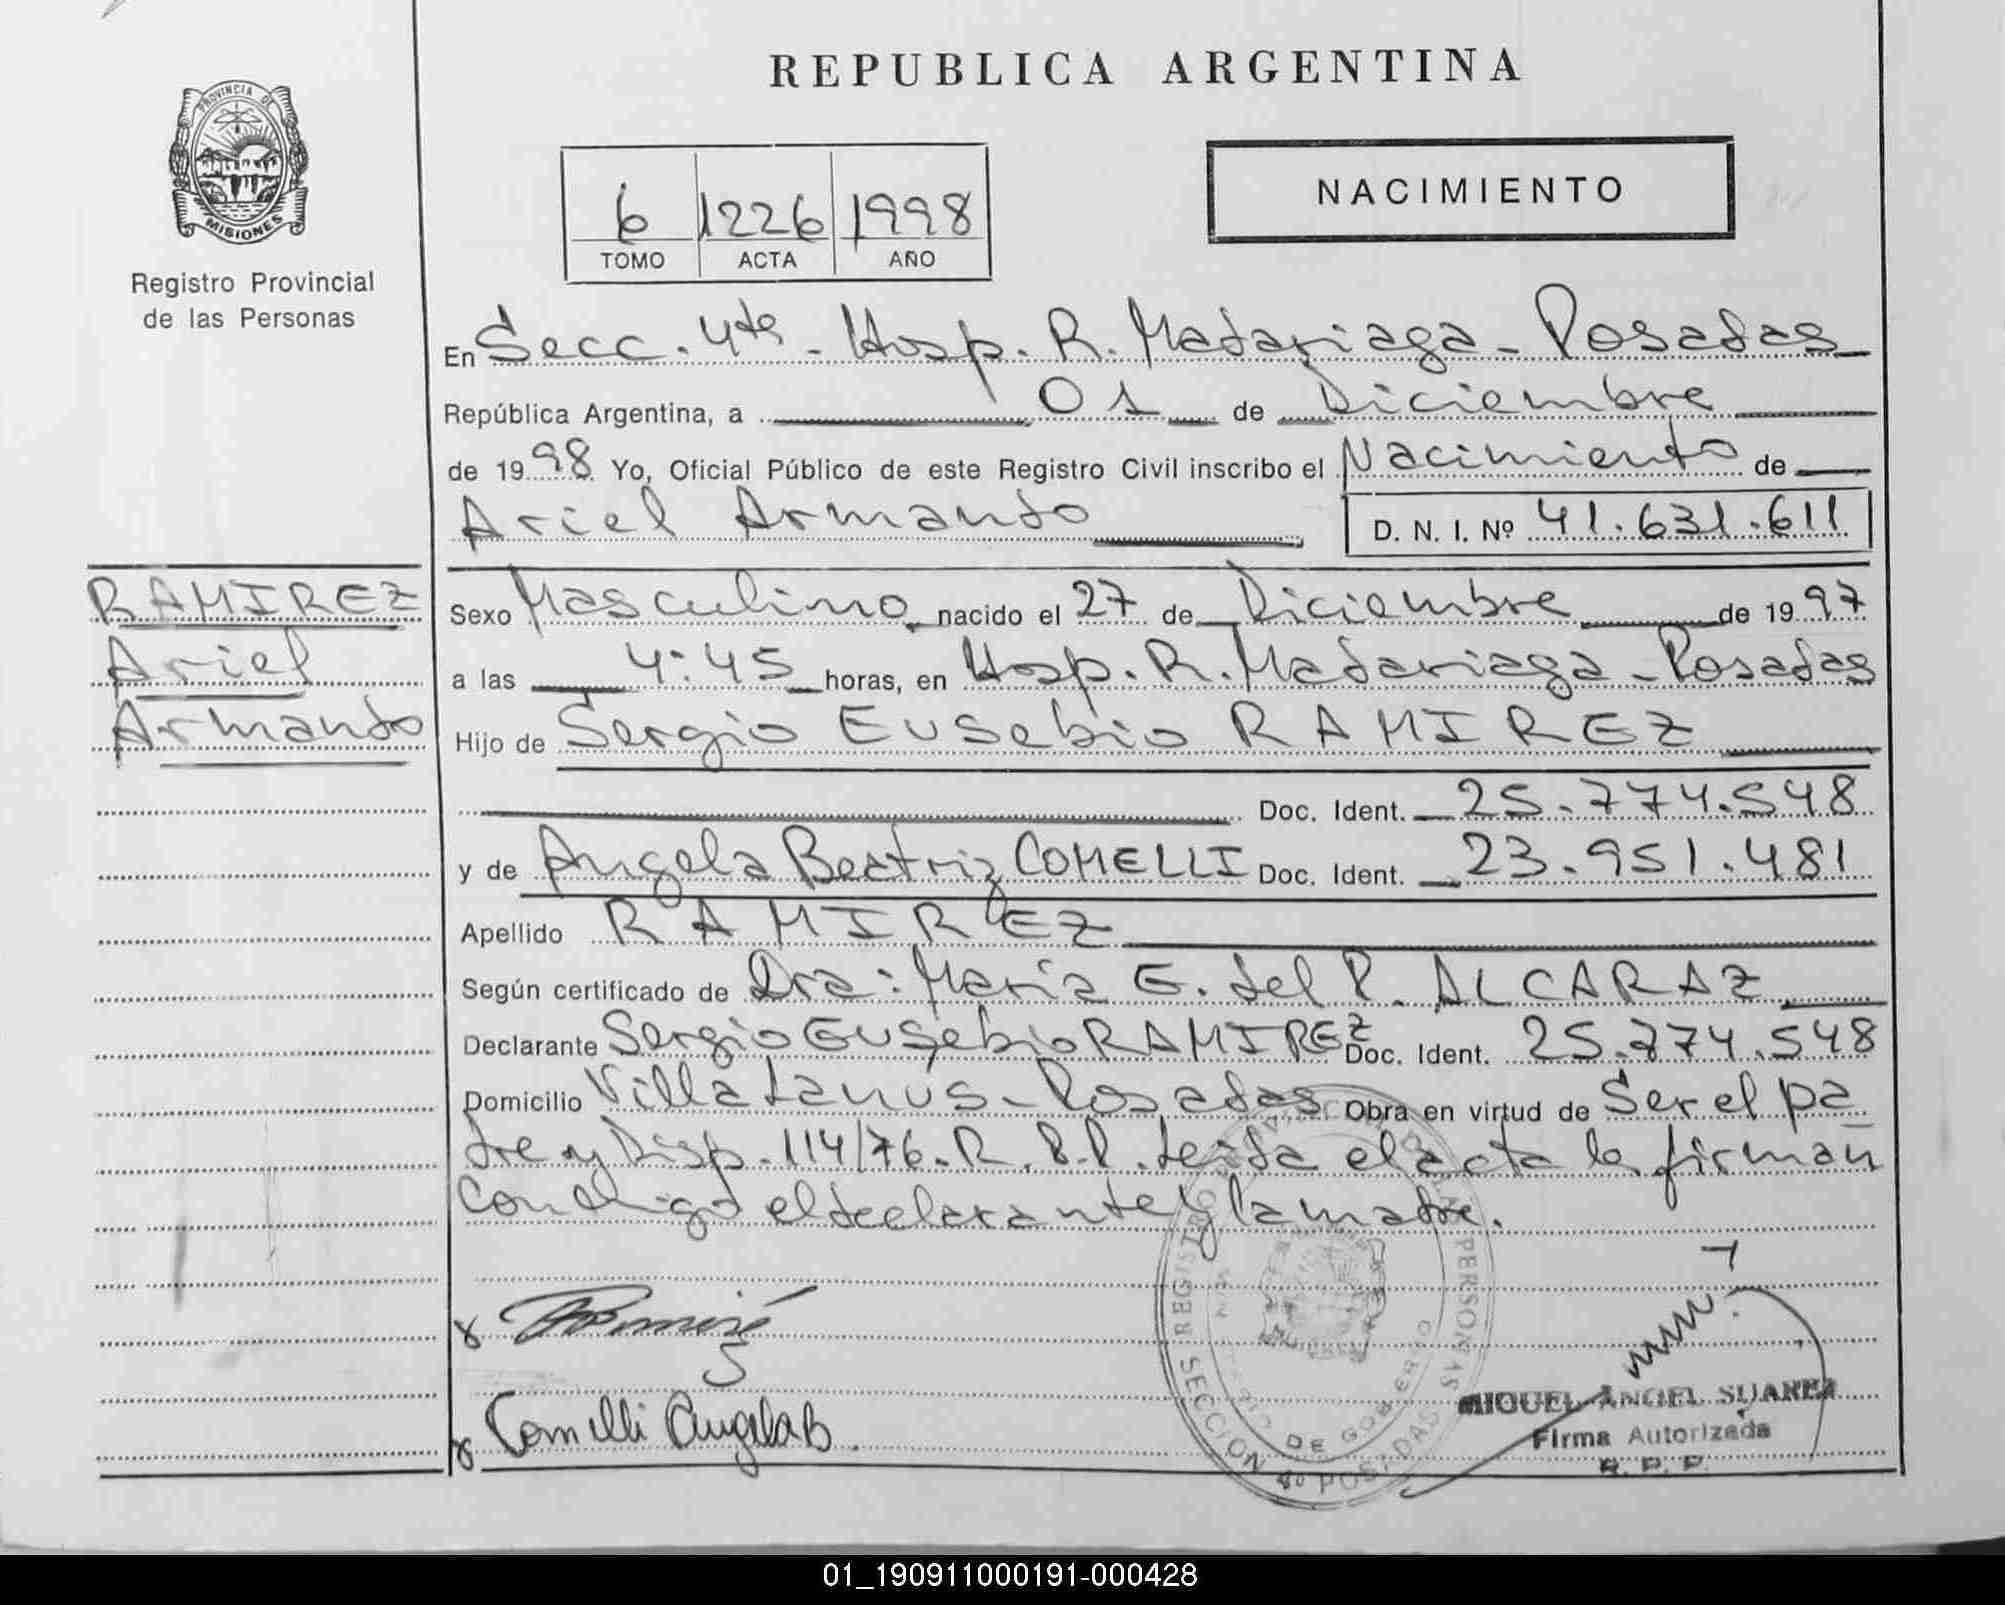 REPUBLICA ARGENTINA
PROVINCIA DE
MISIONES
Registro Provincial
de las Personas
NACIMIENTO
6 1226 1998
TOMO ACTA AÑO
En Secc. 4ta - Hosp. R. Madariaga - Posadas
República Argentina, a 01 de Diciembre
de 1998 Yo, Oficial Público de este Registro Civil inscribo el Nacimiento de
Ariel Armando D. N. I. Nº 41.631.611
RAMIREZ
Ariel
Armando
Sexo Masculino nacido el 27 de Diciembre de 1997
a las 4:45 horas, en Hosp. R. Madariaga - Posadas
Hijo de Sergio Eusebio RAMIREZ
Doc. Ident. 25.774.548
y de Angela Beatriz COMELLI Doc. Ident. 23.951.481
Apellido RAMIREZ
Según certificado de Dra: María G. del P. ALCARAZ
Declarante Sergio Eusebio RAMIREZ Doc. Ident. 25.774.548
Domicilio Villa Lanús - Posadas Obra en virtud de Ser el pa
dre y Disp. 114/76. R.P.P. leída el acta la firman
conmigo el declarante y la madre.
Comelli Angela B
MIGUEL ANGEL SUAREZ
Firma Autorizada
R. P. P.
01_190911000191-000428